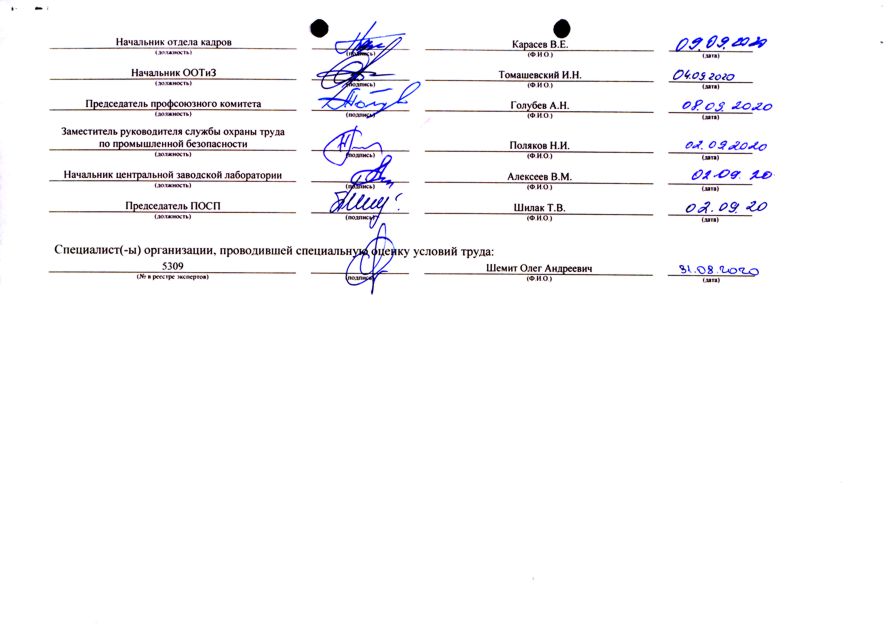 Начальник отдела кадров Карасев В.Е. 09.09.2020
(должность) (подпись) (Ф.И.О.) (дата)
Начальник ООТиЗ Томашевский И.Н. 04.09.2020
(должность) (подпись) (Ф.И.О.) (дата)
Председатель профсоюзного комитета Голубев А.Н. 08.09.2020
(должность) (подпись) (Ф.И.О.) (дата)
Заместитель руководителя службы охраны труда
по промышленной безопасности Поляков Н.И. 02.09.2020
(должность) (подпись) (Ф.И.О.) (дата)
Начальник центральной заводской лаборатории Алексеев В.М. 02.09.20
(должность) (подпись) (Ф.И.О.) (дата)
Председатель ПОСП Шилак Т.В. 02.09.20
(должность) (подпись) (Ф.И.О.) (дата)
Специалист(-ы) организации, проводившей специальную оценку условий труда:
5309 Шемит Олег Андреевич 31.08.2020
(№ в реестре экспертов) (подпись) (Ф.И.О.) (дата)